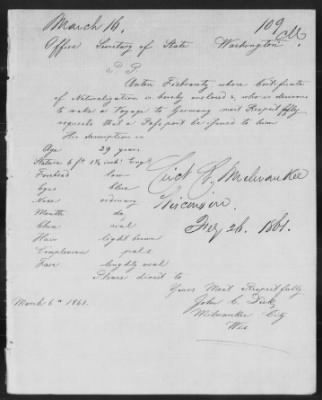 March 16.
109
Office Secretary of State Washington
Anton whose Certificate
of Naturalization is hereby enclosed & who is desirous
to make a Voyage to Germany most Respectfully
requests that a Passport be issued to him
His description is
Age 29 years
Stature 6 ft 1½ inch Engl.
Forehead low
Eyes blue
Nose ordinary
Mouth do
Chin oval
Hair light brown
Complexion pale
Face lengthy oval
Circt C, Milwaukee
Wisconsin.
Fey 26. 1861.
Please direct to
Yours Most Respectfully
John C.
Milwaukee City
Wis
March 6th 1861.